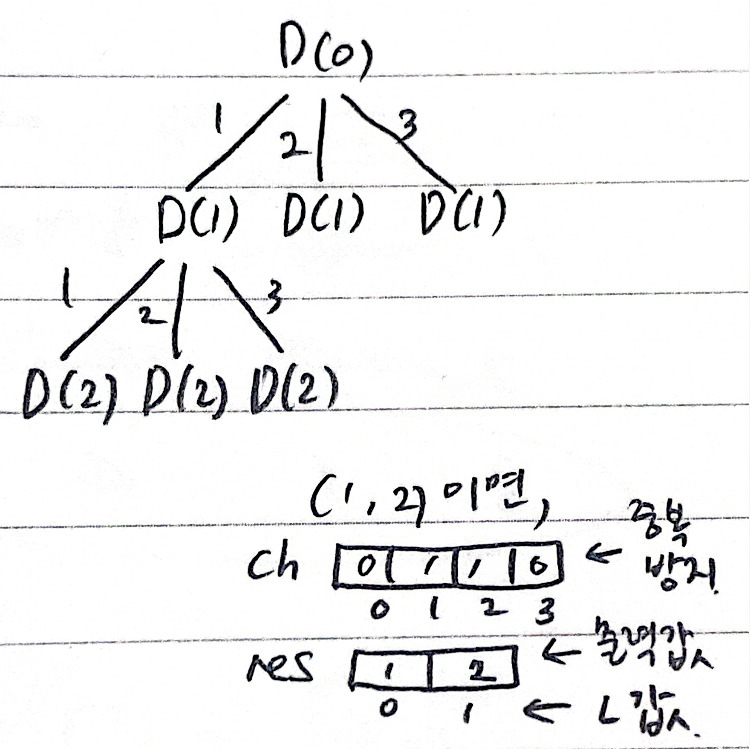 D(0)
1 2 3
D(1) D(1) D(1)
1 2 3
D(2) D(2) D(2)
(1, 2) 이면,
중복
방지.
ch 0 1 1 0 ←
0 1 2 3
res 1 2 ← 출력값
0 1 ← L 값.